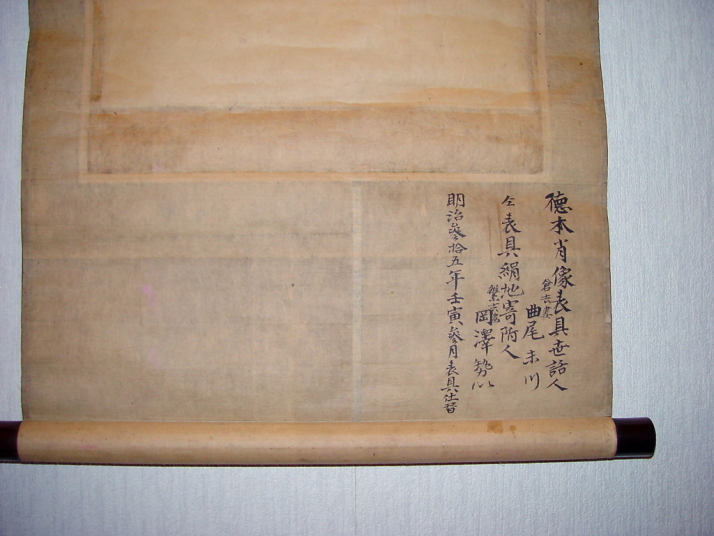 德本肖像表具世話人
曲尾末川
仝表具絹地寄附人
岡澤勢以
明治參拾五年壬寅參月表具仕替